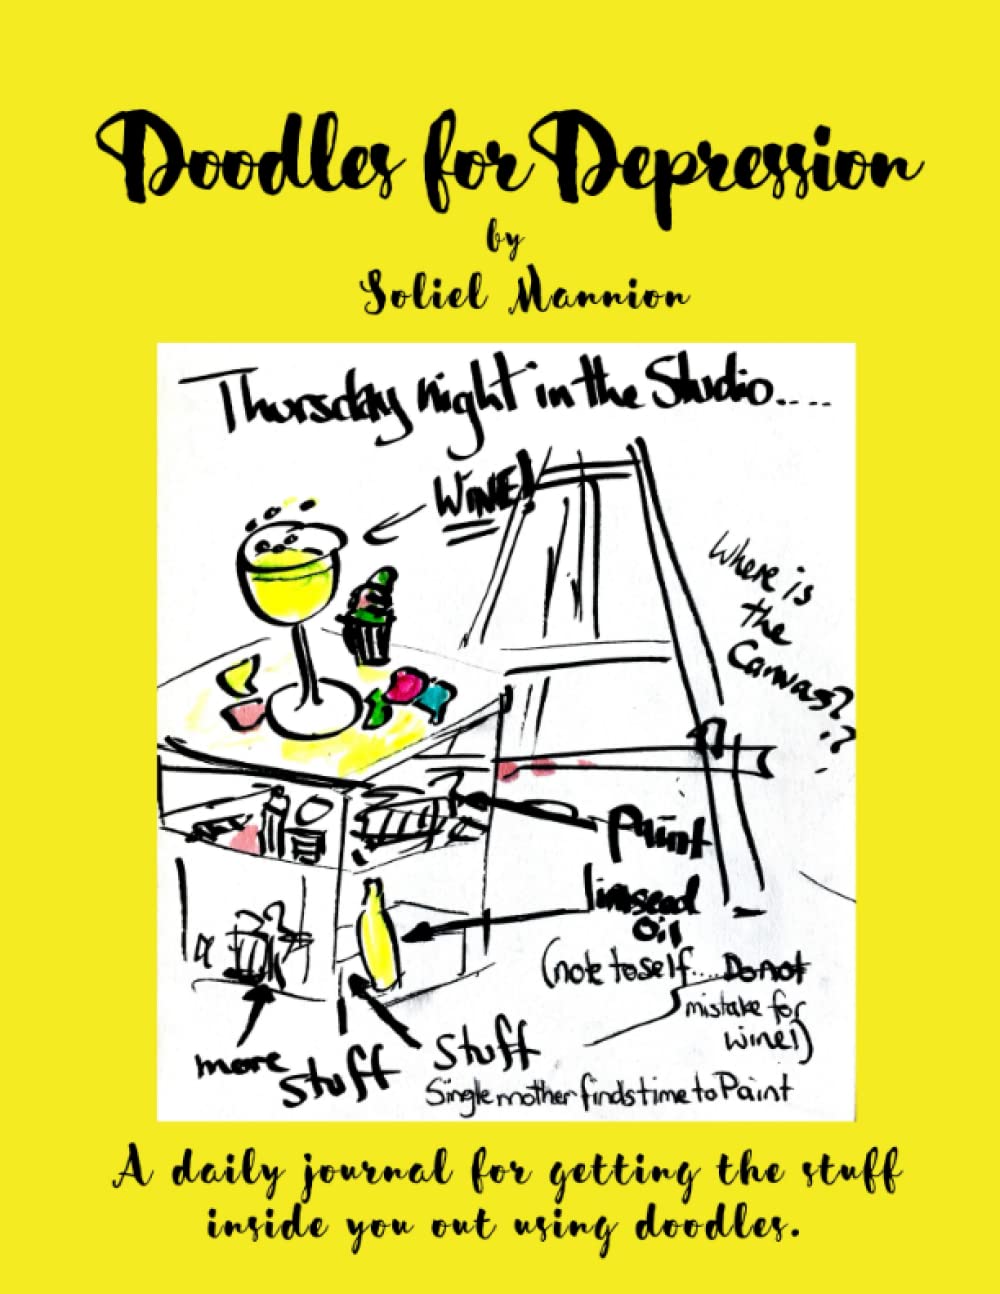 Doodles for Depression
by
Soliel Mannion
Thursday night in the Studio....
WINE!
Where is
the
Canvas?
??
Paint
linseed
oil
(note to self.... Do not
mistake for
wine!)
more stuff
stuff
Single mother finds time to Paint
A daily journal for getting the stuff
inside you out using doodles.